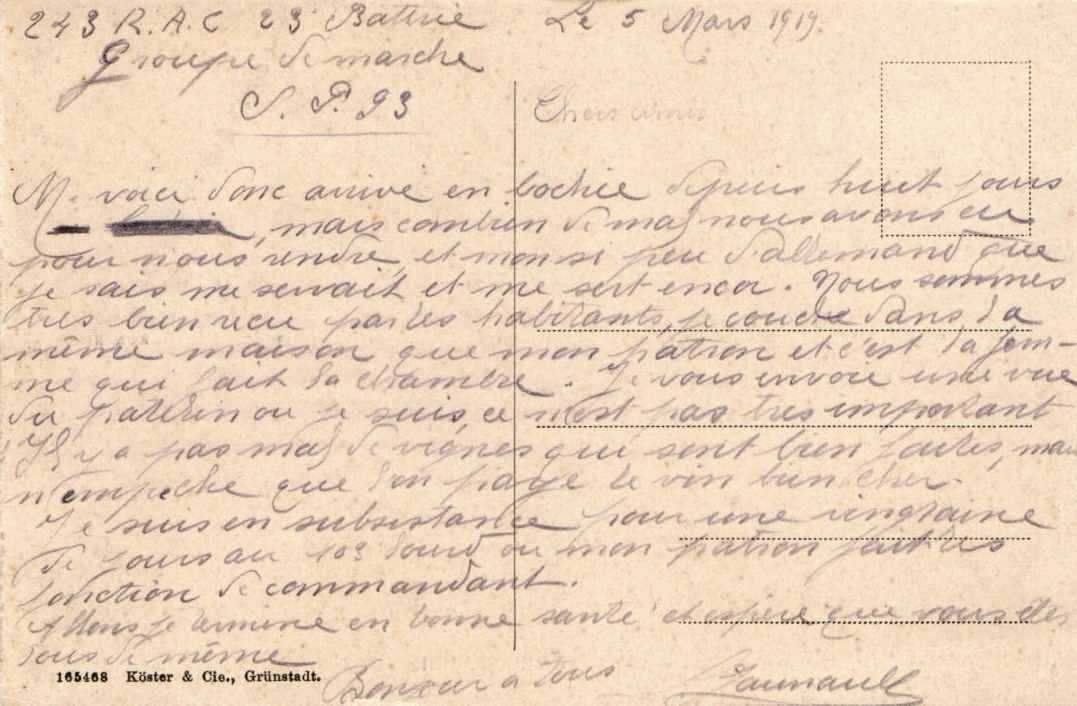 243 R.A.C 23 Batterie Le 5 Mars 1919.
Groupe de marche
S. P. 93
Chers amis
Me voici donc arrivé en bochie depuis huit jours
, mais combien de mal nous avons eu
pour nous rendre, et mon si peu d'allemand que
je sais me servait et me sert encor. Nous sommes
tres bien recu par les habitants, je couche dans la
même maison que mon patron et c'est la fem-
me qui fait la chambre. Je vous envoie une vue
du patelin ou je suis, ce n'est pas tres important
Il y a pas mal de vignes qui sont bien faites, mais
n'empeche que l'on paye le vin bien cher.
Je suis en subsistance pour une vingtaine
de jours au 109 Lourd ou mon patron fait les
fonction de commandant.
Allons je termine en bonne santé et espère que vous etes
tous de même
Bonjour a tous
165468 Köster & Cie., Grünstadt.